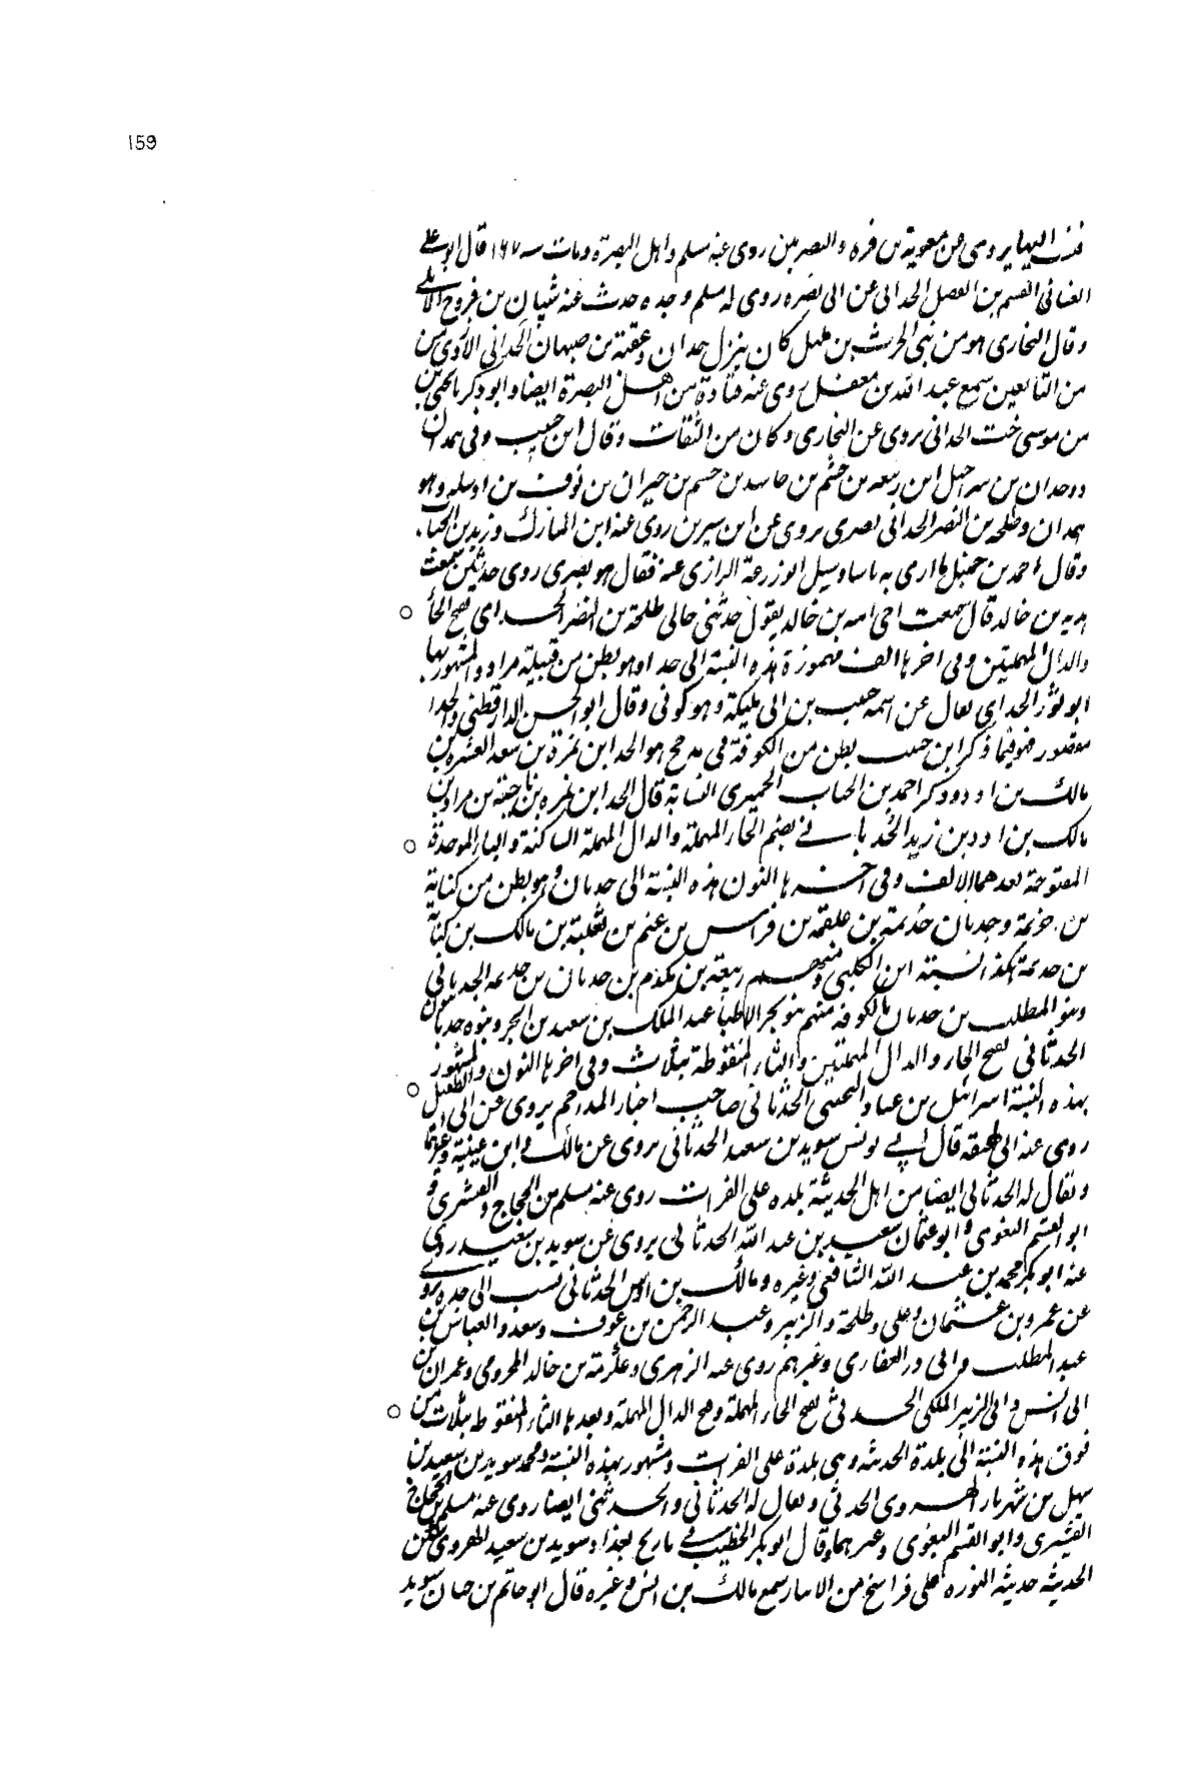 159
فنسب اليها يروى عن معوية بن قره والبصريين روى عنه مسلم واهل البصرة ومات سـ ١٦٧ قال ابو على
الغسانى القسم بن الفضل الحدانى عن ابى نضره روى له مسلم وحده حدث عنه شيبان بن فروخ الابلى
وقال البخارى هو من بنى الحرث بن مالك كان ينزل حدان وعقبة بن صهبان الحدانى الازدى من
من التابعين سمع عبد الله بن مغفل روى عنه قتادة من اهل البصرة ايضا وابو ذكريا يحيى بن
من موسى خت الحدانى يروى عن البخارى وكان من الثقات وقال ابن حبيب وفى همدان
ذوحدان بن سرحبيل ابن ربيعه بن جشم بن حاسد بن جسم بن حيران بن نوف بن اوسله وهو
همدان وطلحه بن النضر الحدانى بصرى يروى عن ابن سيرين روى عنه ابن المبارك وزيد بن الحباب
وقال احمد بن حنبل ما ارى به باسا وسيل ابو زرعة الرازى عنه فقال هو بصرى روى حديثين سمعت
هدبه بن خالد قال سمعت اخى اميه بن خالد يقول حدثنى خالى طلحة بن النضر الحداى بفتح الحا
والدال المهملتين وفى اخرها الف مهموزة هذه النسبة الى حدا وهو بطن من قبيلة مراد والمشهور بها
ابو ثور الحداى يقال عن اسمه حبيب بن ابى مليكة وهو كوفى وقال ابو الحسن الدارقطنى والحدا
مقصور فهو فيما ذكر ابن حبيب بطن من الكوفة فى مذحج هو الحدا بن نمرة بن سعد العشيره بن
مالك بن ادد وذكر احمد بن الحباب الحميرى النسابة قال الحدا بن نمره بن ناجيه بن مراد بن
مالك بن ادد بن زيد الحدبانى بضم الحاء المهملة والدال المهملة الساكنة والباء الموحدة
المفتوحة بعدهما الالف وفى اخرها النون هذه النسبة الى حدبان وهو بطن من كنانة
بن خزيمة وحدبان جذيمة بن علقمه بن فراس بن غنم بن ثعلبة بن مالك بن كنانة
بن خزيمة هكذا نسبة ابن الكلبى ومنهم ربيعة بن مكدم بن حدبان بن جذيمه الحدبانى
وبنو المطلب بن حدبان بالكوفه منهم بنو بجر الاطباء عبد الملك بن سعيد بن ابجر وبنوه حدبانيون
الحدثانى بفتح الحاء والدال المهملتين والثاء المنقوطة بثلاث وفى اخرها النون والمشهور
بهذه النسبة اسرائيل بن عباد التجيبى الحدثانى صاحب اخبار الملاحم يروى عن ابى الطفيل
روى عنه ابو قال ابى يونس سويد بن سعيد الحدثانى يروى عن مالك وابن عيينة وغيرهما
ويقال له الحدثانى ايضا من اهل الحديثة بلده على الفرات روى عنه مسلم بن الحجاج القشيرى و
ابو القسم البغوى وابو عثمان سعيد بن عبد الله الحدثانى يروى عن سويد بن سعيد روى
عنه ابو بكر محمد بن عبد الله الشافعى وغيره ومالك بن اوس الحدثانى نسب الى جده يروى
عن عمر وبن عثمان وعلى وطلحة والزبير وعبد الرحمن بن عوف وسعد والعباس بن
عبد المطلب وابى ذر الغفارى وغيرهم روى عنه الزهرى وعكرمة بن خالد المخزومى وعمران بن
ابى انس وابى الزبير المكى الحدثى بفتح الحاء المهملة وفتح الدال المهملة وبعدها الثاء المنقوطه بثلاث من
فوق هذه النسبة الى بلدة الحديثه وهى بلدة على الفرات ومشهور بهذه النسبة ابو محمد سويد بن سعيد بن
سهل بن شهريار الهروى الحدثى ويقال له الحدثانى والحدثنى ايضا روى عنه مسلم بن الحجاج
القشيرى وابو القسم البغوى وغيرهما وقال ابو بكر الخطيب فى تاريخ بغداد وسويد بن سعيد الهروى سكن
الحديثه حديثه النوره على فراسخ من الانبار سمع مالك بن انس وغيره قال ابو حاتم بن حبان سويد